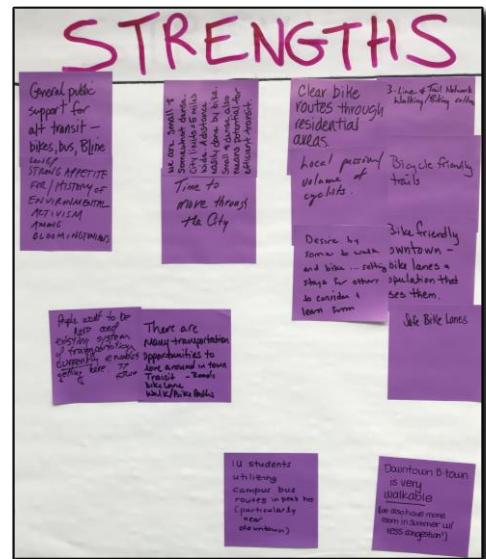 STRENGTHS
General public
support for
alt transit -
bikes, bus, Bline
STRONG APPETITE
FOR / HISTORY OF
ENVIRONMENTAL
ACTIVISM
AMONG
BLOOMINGTONIANS
We are small &
somewhat dense.
City limits ≈ 5 miles
wide. A distance
easily done by bike.
Small & dense also
means potential for
efficient transit.
Time to
move through
the City
Clear bike
routes through
residential
areas.
Local passion/
volume of
cyclists.
Desire by
some to walk
and bike ... setting
stage for others
to consider &
learn from
-Line & Trail Network
Walking/Biking
Bicycle friendly
trails
Bike friendly
owntown -
bike lanes &
opulation that
ses them.
Safe Bike Lanes
People want to be
here and
existing system
of transportation
currently enables
getting here
There are
Many transportation
opportunities to
move around in town
Transit - Roads
Bike Lane
Walk/Bike Paths
IU students
utilizing
campus bus
routes in peak hrs
(particularly
near
downtown)
Downtown B-town
is very
walkable
(we also have more
room in summer w/
less congestion!)